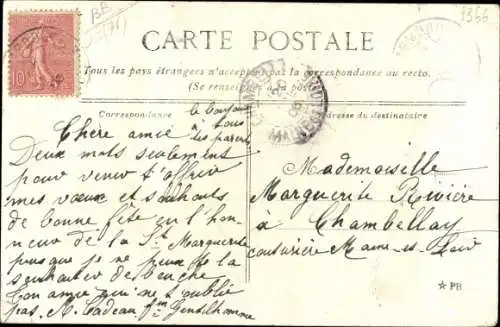 BB
1366
10
CARTE POSTALE
Tous les pays étrangers n'acceptent pas la correspondance au recto.
(Se renseigner à la poste)
Correspondance
Adresse du destinataire
le bonjour
à tous
tes parents
Chère amie
Deux mots seulement
pour venir t'offrir
mes vœux et souhaits
de bonne fête en l'hon-
neur de la Ste Marguerite
puisque je ne peux te la
souhaiter de bouche
Ton amie qui ne t'oublie
pas. M. Cadeau fm Gentilhomme
Mademoiselle
Marguerite Rivière
à Chambellay
couturière Maine-et-Loir
PB